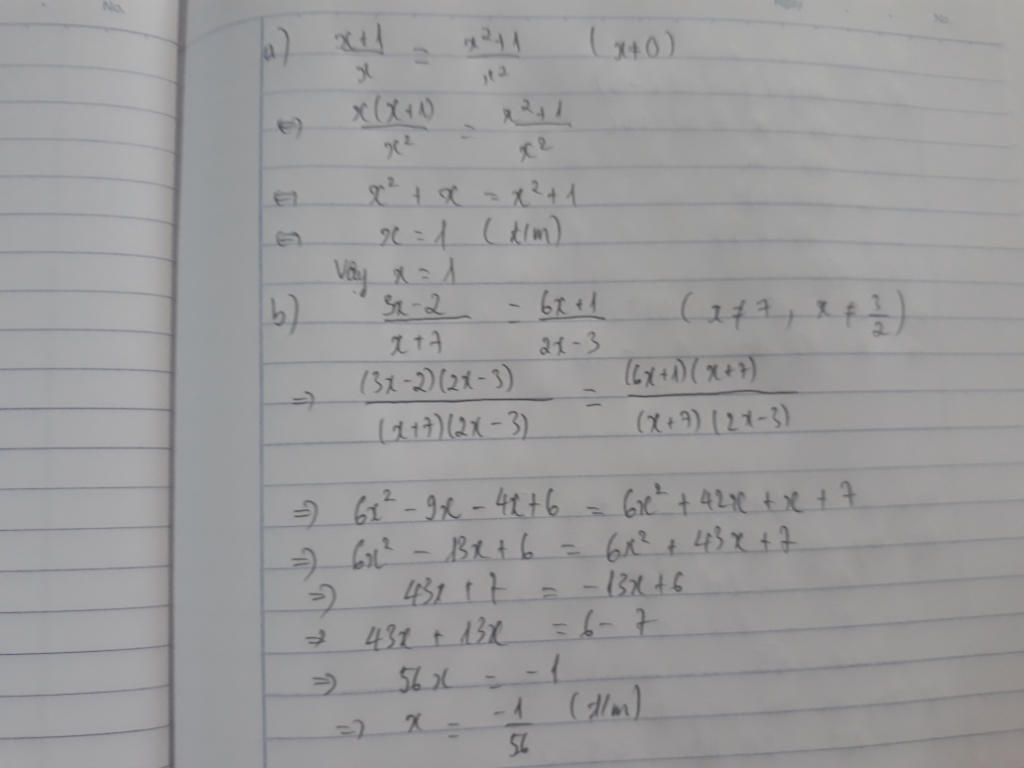 No.
Ngày
No.
a) x+1/x = x²+1/x² (x≠0)
⇔ x(x+1)/x² = x²+1/x²
⇔ x² + x = x²+1
⇔ x = 1 (t/m)
Vậy x = 1
b) 3x-2/x+7 = 6x+1/2x-3 (x≠7, x≠3/2)
⇒ (3x-2)(2x-3)/(x+7)(2x-3) = (6x+1)(x+7)/(x+7)(2x-3)
⇒ 6x² - 9x - 4x+6 = 6x² + 42x + x + 7
⇒ 6x² - 13x + 6 = 6x² + 43x + 7
⇒ 43x + 7 = -13x+6
⇒ 43x + 13x = 6 - 7
⇒ 56x = -1
⇒ x = -1/56 (t/m)